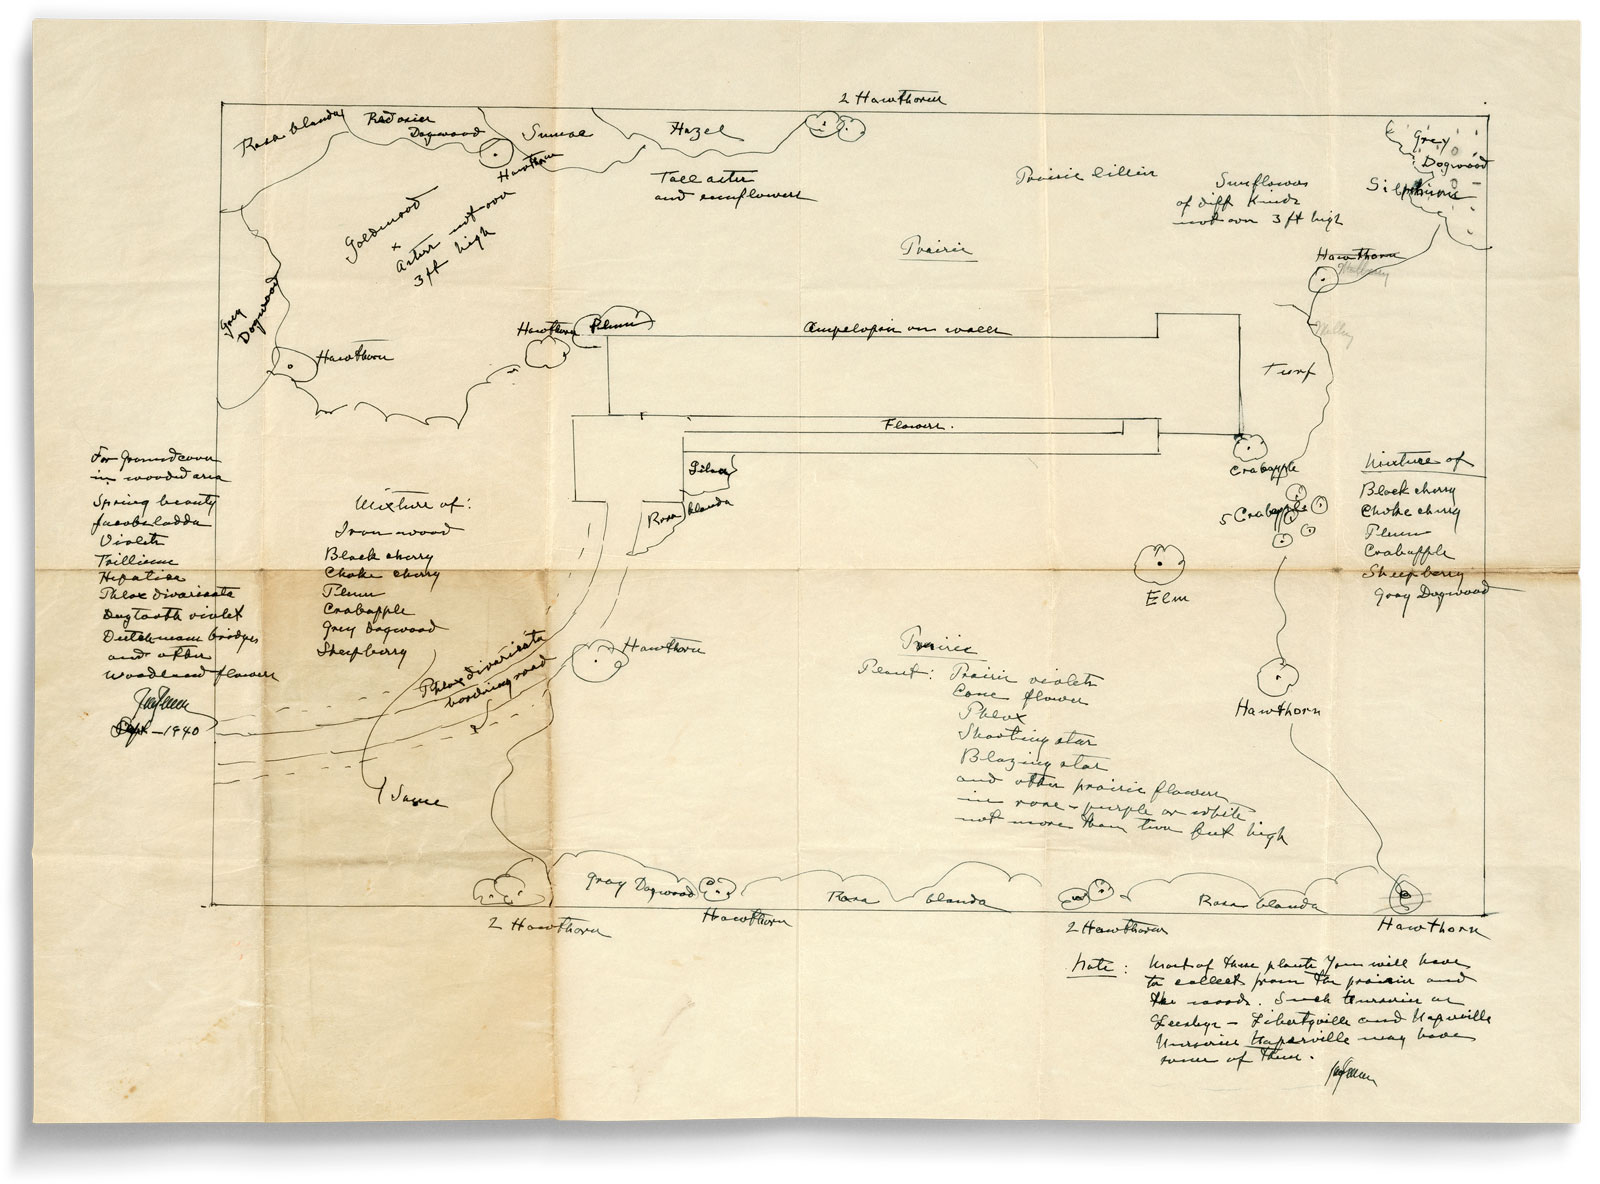 2 Hawthorn
Rosa blanda
Red osier
Dogwood
Sumac
Hazel
Hawthorn
Tall aster
and sunflowers
Prairie lilies
Sunflowers
of diff kinds
not over 3 ft high
Grey
Dogwood
Silphium
Goldenrod
x
Asters not over
3 ft high
Prairie
Hawthorn
Mulberry
Grey
Dogwood
Hawthorn
Hawthorn
Plum
Ampelopsis on walls
Turf
Flowers.
Crabapple
5 Crabapple
Rosa blanda
Elm
For groundcover
in wooded area
Spring beauty
Jacobs ladder
Violets
Trillium
Hepatica
Phlox divaricata
Dogtooth violet
Dutchman bridges
and other
woodland flowers
Jens Jensen
Sept - 1940
Mixture of:
Iron wood
Black cherry
Choke cherry
Plum
Crabapple
Grey Dogwood
Sheepberry
Mixture of
Black cherry
Choke cherry
Plum
Crabapple
Sheepberry
Gray Dogwood
Phlox divaricata
bordering road
Hawthorn
Same
Prairie
Plant: Prairie violets
Cone flower
Phlox
Shooting star
Blazing star
and other prairie flowers
in rose - purple or white
not more than two feet high
Hawthorn
Gray Dogwood
Rosa blanda
Rosa blanda
2 Hawthorn
Hawthorn
2 Hawthorn
Hawthorn
Note: Most of these plants you will have
to collect from the prairie and
the woods. Such nurseries as
Leesley - Libertyville and Naperville
Nurseries Naperville may have
some of them.
Jens Jensen